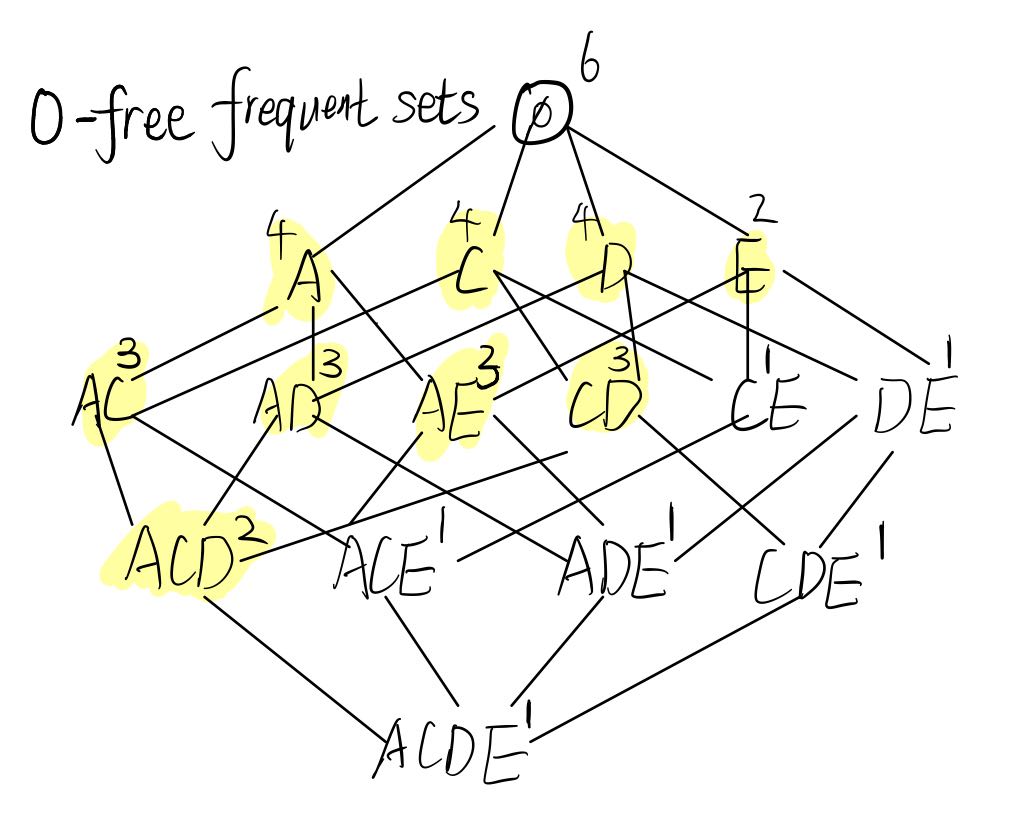 6
0-free frequent sets ∅
4 A 4 C 4 D 2 E
AC 3 AD 3 AE 3 CD 3 CE 1 DE 1
ACD 2 ACE 1 ADE 1 CDE 1
ACDE 1